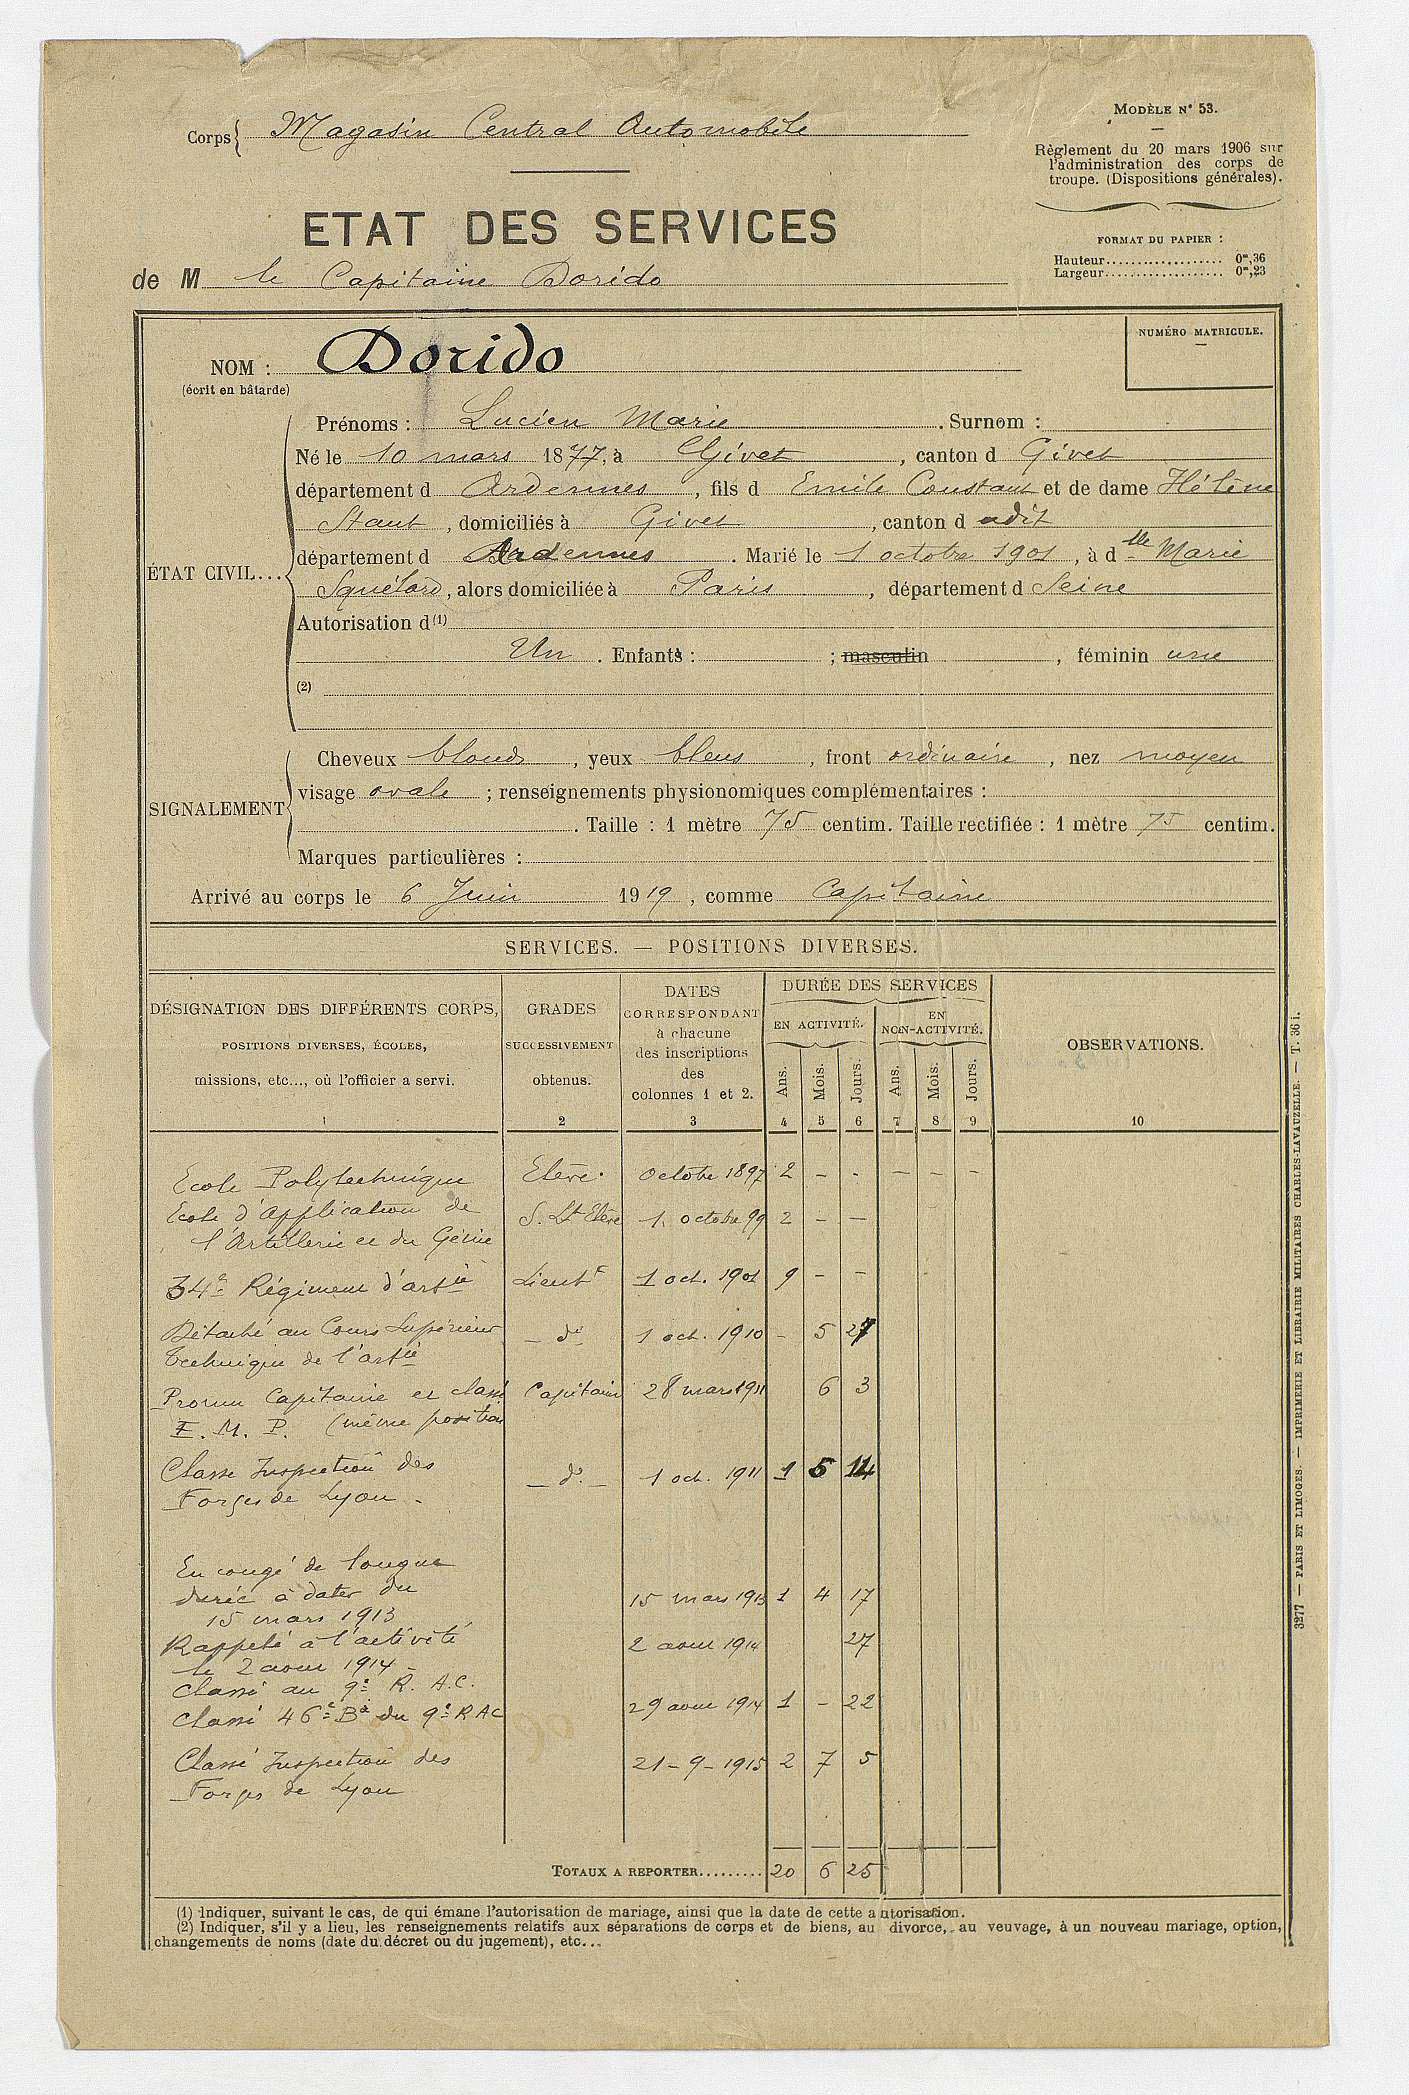 Corps { Magasin Central Automobile
MODÈLE N° 53.
Règlement du 20 mars 1906 sur
l'administration des corps de
troupe. (Dispositions générales).
FORMAT DU PAPIER :
Hauteur.................. 0m,36
Largeur.................. 0m,23
ETAT DES SERVICES
de M le Capitaine Dorido
NUMÉRO MATRICULE.
NOM : Dorido
(écrit en bâtarde)
ÉTAT CIVIL...
Prénoms : Lucien Marie . Surnom :
Né le 10 mars 1877, à Givet , canton d Givet
département d Ardennes , fils d Emile Constant et de dame Hélène
Staut , domiciliés à Givet , canton d udit
département d Ardennes . Marié le 1 octobre 1901 , à d lle Marie
Squélard , alors domiciliée à Paris , département d Seine
Autorisation d (1)
Un . Enfants : ; masculin , féminin une
(2)
SIGNALEMENT
Cheveux blonds , yeux bleus , front ordinaire , nez moyen
visage ovale ; renseignements physionomiques complémentaires :
. Taille : 1 mètre 75 centim. Taille rectifiée : 1 mètre 75 centim.
Marques particulières :
Arrivé au corps le 6 Juin 1919 , comme Capitaine
SERVICES. — POSITIONS DIVERSES.
DÉSIGNATION DES DIFFÉRENTS CORPS,
POSITIONS DIVERSES, ÉCOLES,
missions, etc..., où l'officier a servi.
1
GRADES
SUCCESSIVEMENT
obtenus.
2
DATES
CORRESPONDANT
à chacune
des inscriptions
des
colonnes 1 et 2.
3
DURÉE DES SERVICES
EN ACTIVITÉ.
EN
NON-ACTIVITÉ.
Ans. Mois. Jours. Ans. Mois. Jours.
4 5 6 7 8 9
OBSERVATIONS.
10
Ecole Polytechnique Elève. octobre 1897 2 - - - - -
Ecole d'application de S. Lt Elève 1 octobre 99 2 - -
l'Artillerie et du Génie
34e Régiment d'artie Lieutt 1 oct. 1901 9 - -
Détaché au Cours Supérieur - do 1 oct. 1910 - 5 27
Technique de l'artie
Promu Capitaine et classé Capitaine 28 mars 1911 6 3
E. M. P. (même position
Classé Inspection des - do - 1 oct. 1911 1 5 14
Forges de Lyon -
En congé de longue
durée à dater du 15 mars 1913 1 4 17
15 mars 1913
Rappelé à l'activité 2 aout 1914 27
le 2 aout 1914 -
Classé au 9e R. A. C.
Classé 46e Bie du 9e RAC 29 aout 1914 1 - 22
Classé Inspection des 21-9-1915 2 7 5
Forges de Lyon
TOTAUX A REPORTER......... 20 6 25
(1) Indiquer, suivant le cas, de qui émane l'autorisation de mariage, ainsi que la date de cette autorisation.
(2) Indiquer, s'il y a lieu, les renseignements relatifs aux séparations de corps et de biens, au divorce, au veuvage, à un nouveau mariage, option,
changements de noms (date du décret ou du jugement), etc...
3277 — PARIS ET LIMOGES. — IMPRIMERIE ET LIBRAIRIE MILITAIRES CHARLES-LAVAUZELLE. — T. 36 i.